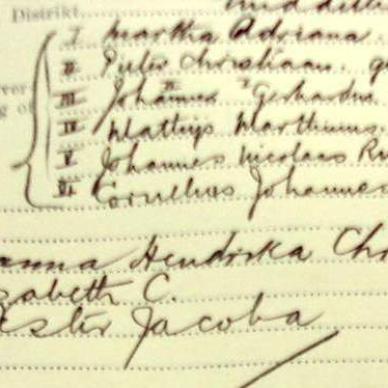 Distrikt
I Martha Adriana.
II Pieter Christiaan.
III Johannes Gerhardus
IV Matthys Marthinus
V Johannes Nicolaas Ru
VI Cornelius Johannes
anna Hendrika Ch
zabeth C.
Ester Jacoba